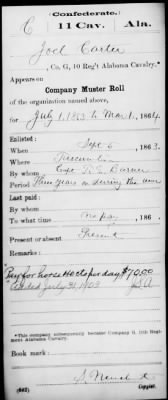 Confederate.
C 11 Cav. Ala.
Joel Carter
, Co. G, 10 Reg't Alabama Cavalry.*
Appears on
Company Muster Roll
of the organization named above,
for July 1, 1863 to Mar 1, 1864.
Enlisted:
When Sept 6, 1863.
Where
By whom Capt
Period Three years or during the war
Last paid:
By whom
To what time no pay, 186 .
Present or absent Present
Remarks:
Pay for horse 40 cts per day $70.00
July 1903
*This company subsequently became Company G, 11th Regiment Alabama Cavalry.
Book mark:
(642) Copyist.